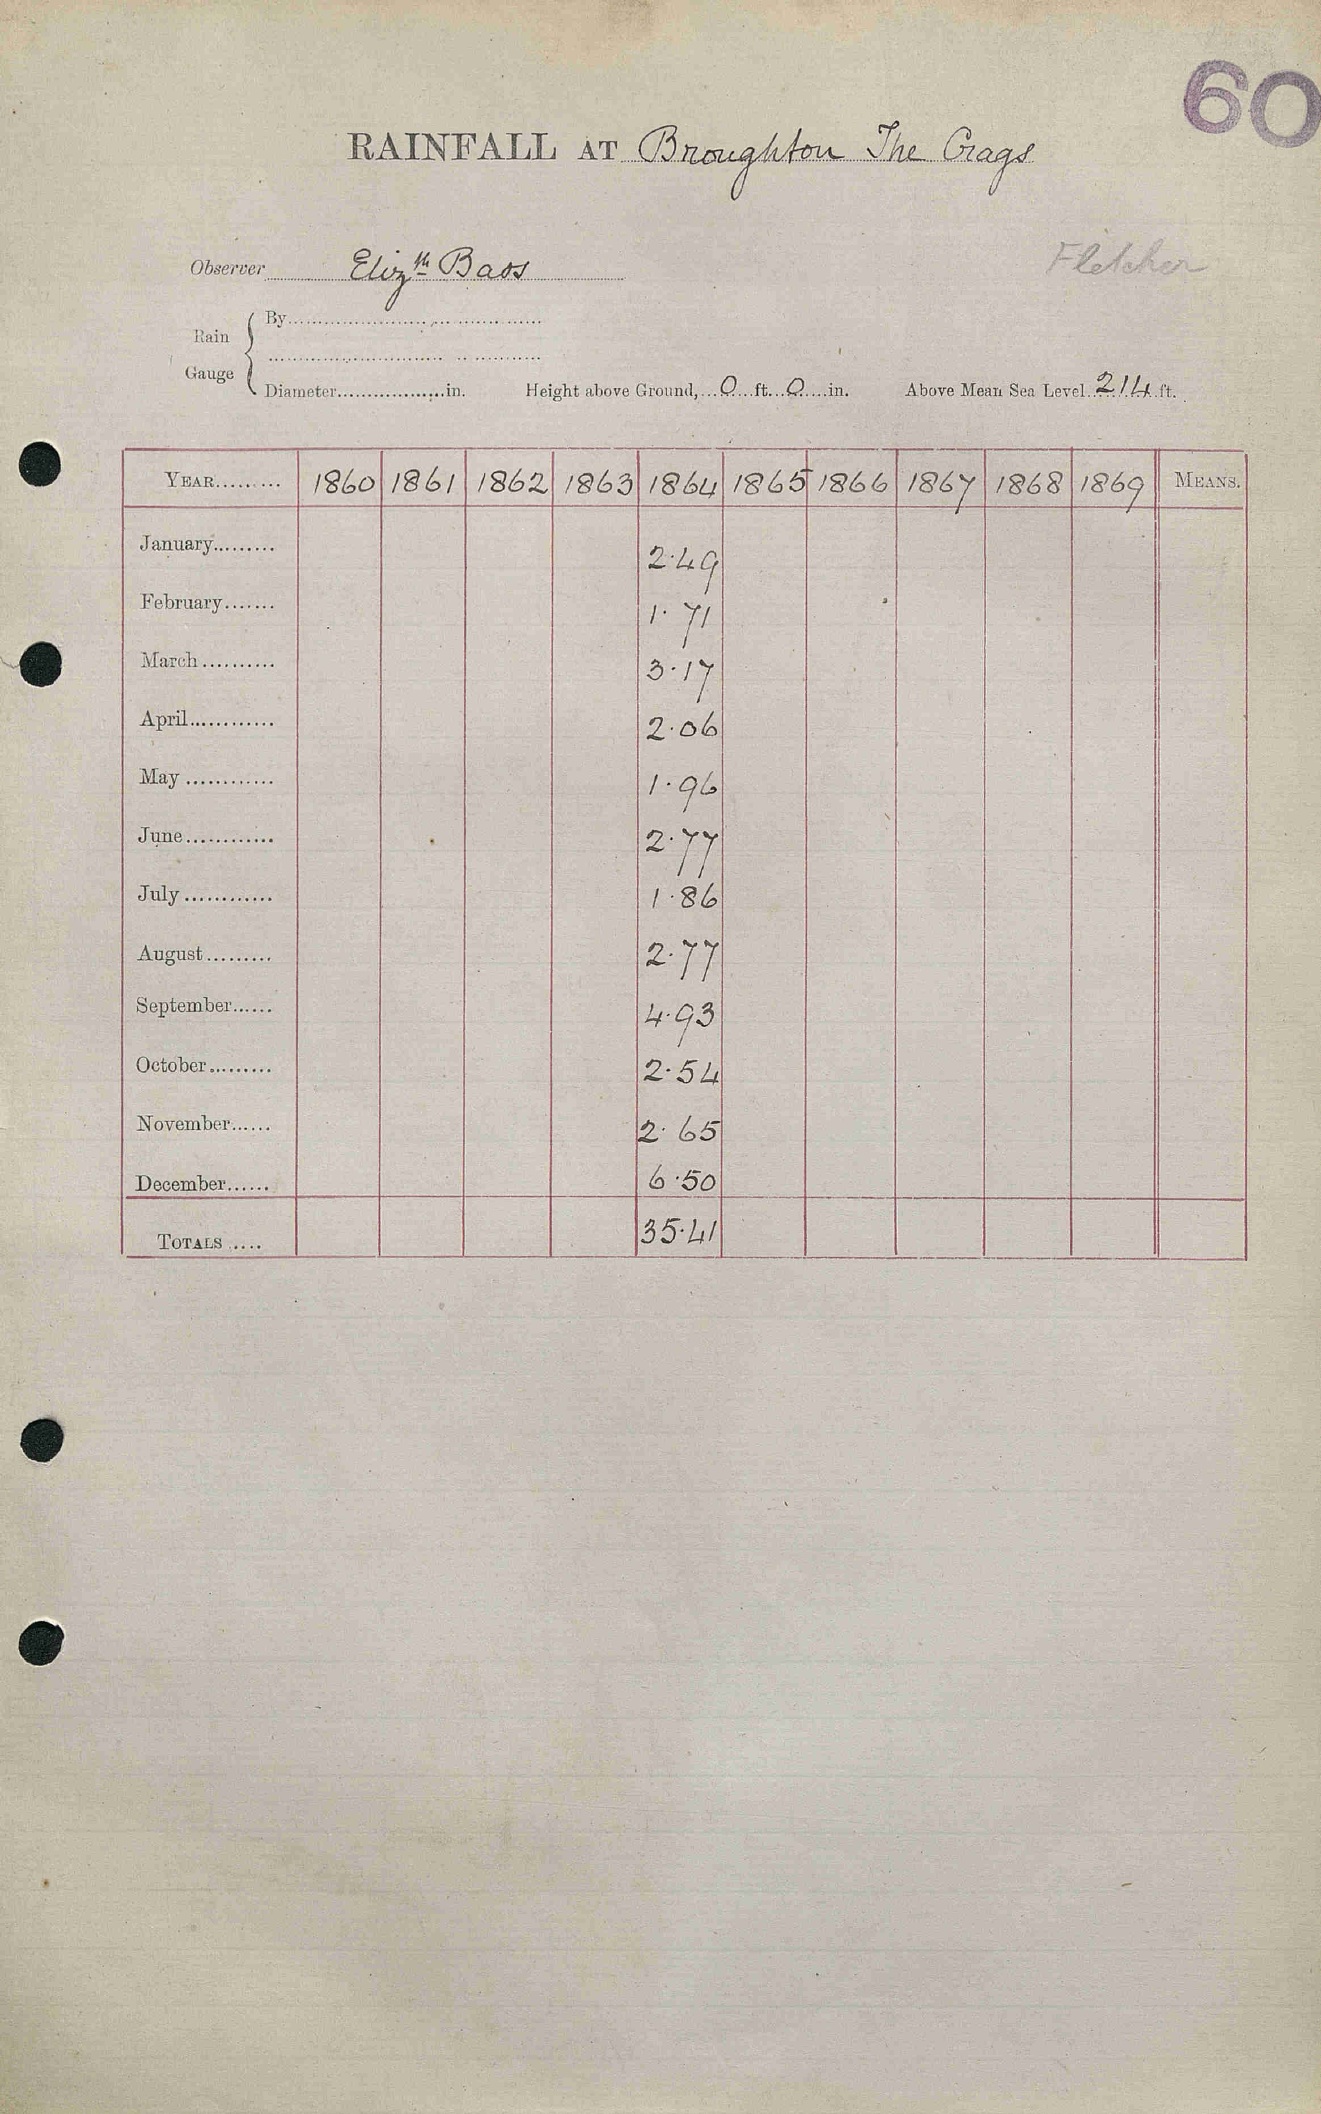 60
RAINFALL AT Broughton The Crags
Observer Eliz.th
Fletcher
Rain Gauge
By
Diameter in. Height above Ground, 0 ft. 0 in. Above Mean Sea Level 214 ft.
YEAR 1860 1861 1862 1863 1864 1865 1866 1867 1868 1869 MEANS.
January 2.49
February 1.71
March 3.17
April 2.06
May 1.96
June 2.77
July 1.86
August 2.77
September 4.93
October 2.54
November 2.65
December 6.50
TOTALS 35.41